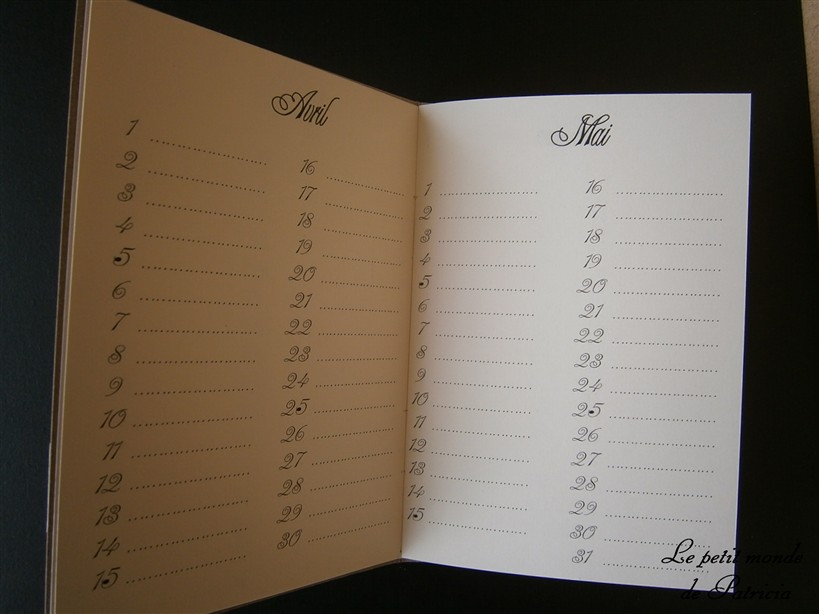 Avril
1 ............................
2 ............................
3 ............................
4 ............................
5 ............................
6 ............................
7 ............................
8 ............................
9 ............................
10 ............................
11 ............................
12 ............................
13 ............................
14 ............................
15 ............................
16 ............................
17 ............................
18 ............................
19 ............................
20 ............................
21 ............................
22 ............................
23 ............................
24 ............................
25 ............................
26 ............................
27 ............................
28 ............................
29 ............................
30 ............................
Mai
1 ............................
2 ............................
3 ............................
4 ............................
5 ............................
6 ............................
7 ............................
8 ............................
9 ............................
10 ............................
11 ............................
12 ............................
13 ............................
14 ............................
15 ............................
16 ............................
17 ............................
18 ............................
19 ............................
20 ............................
21 ............................
22 ............................
23 ............................
24 ............................
25 ............................
26 ............................
27 ............................
28 ............................
29 ............................
30 ............................
31 ............................
Le petit monde
de Patricia